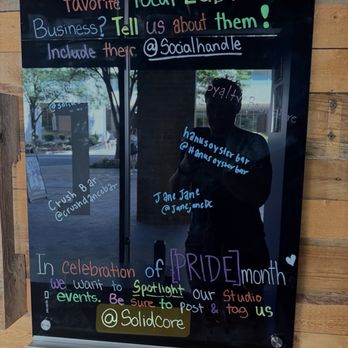 favorite local
Business? Tell us about them!
Include their @Socialhandle
hanksoysterbar
@Hanksoysterbar
Crush Bar
@crushdancebar
Jane Jane
@JanejaneDC
In celebration of [PRIDE] month
we want to Spotlight our Studio
events. Be sure to post & tag us
@SolidCore